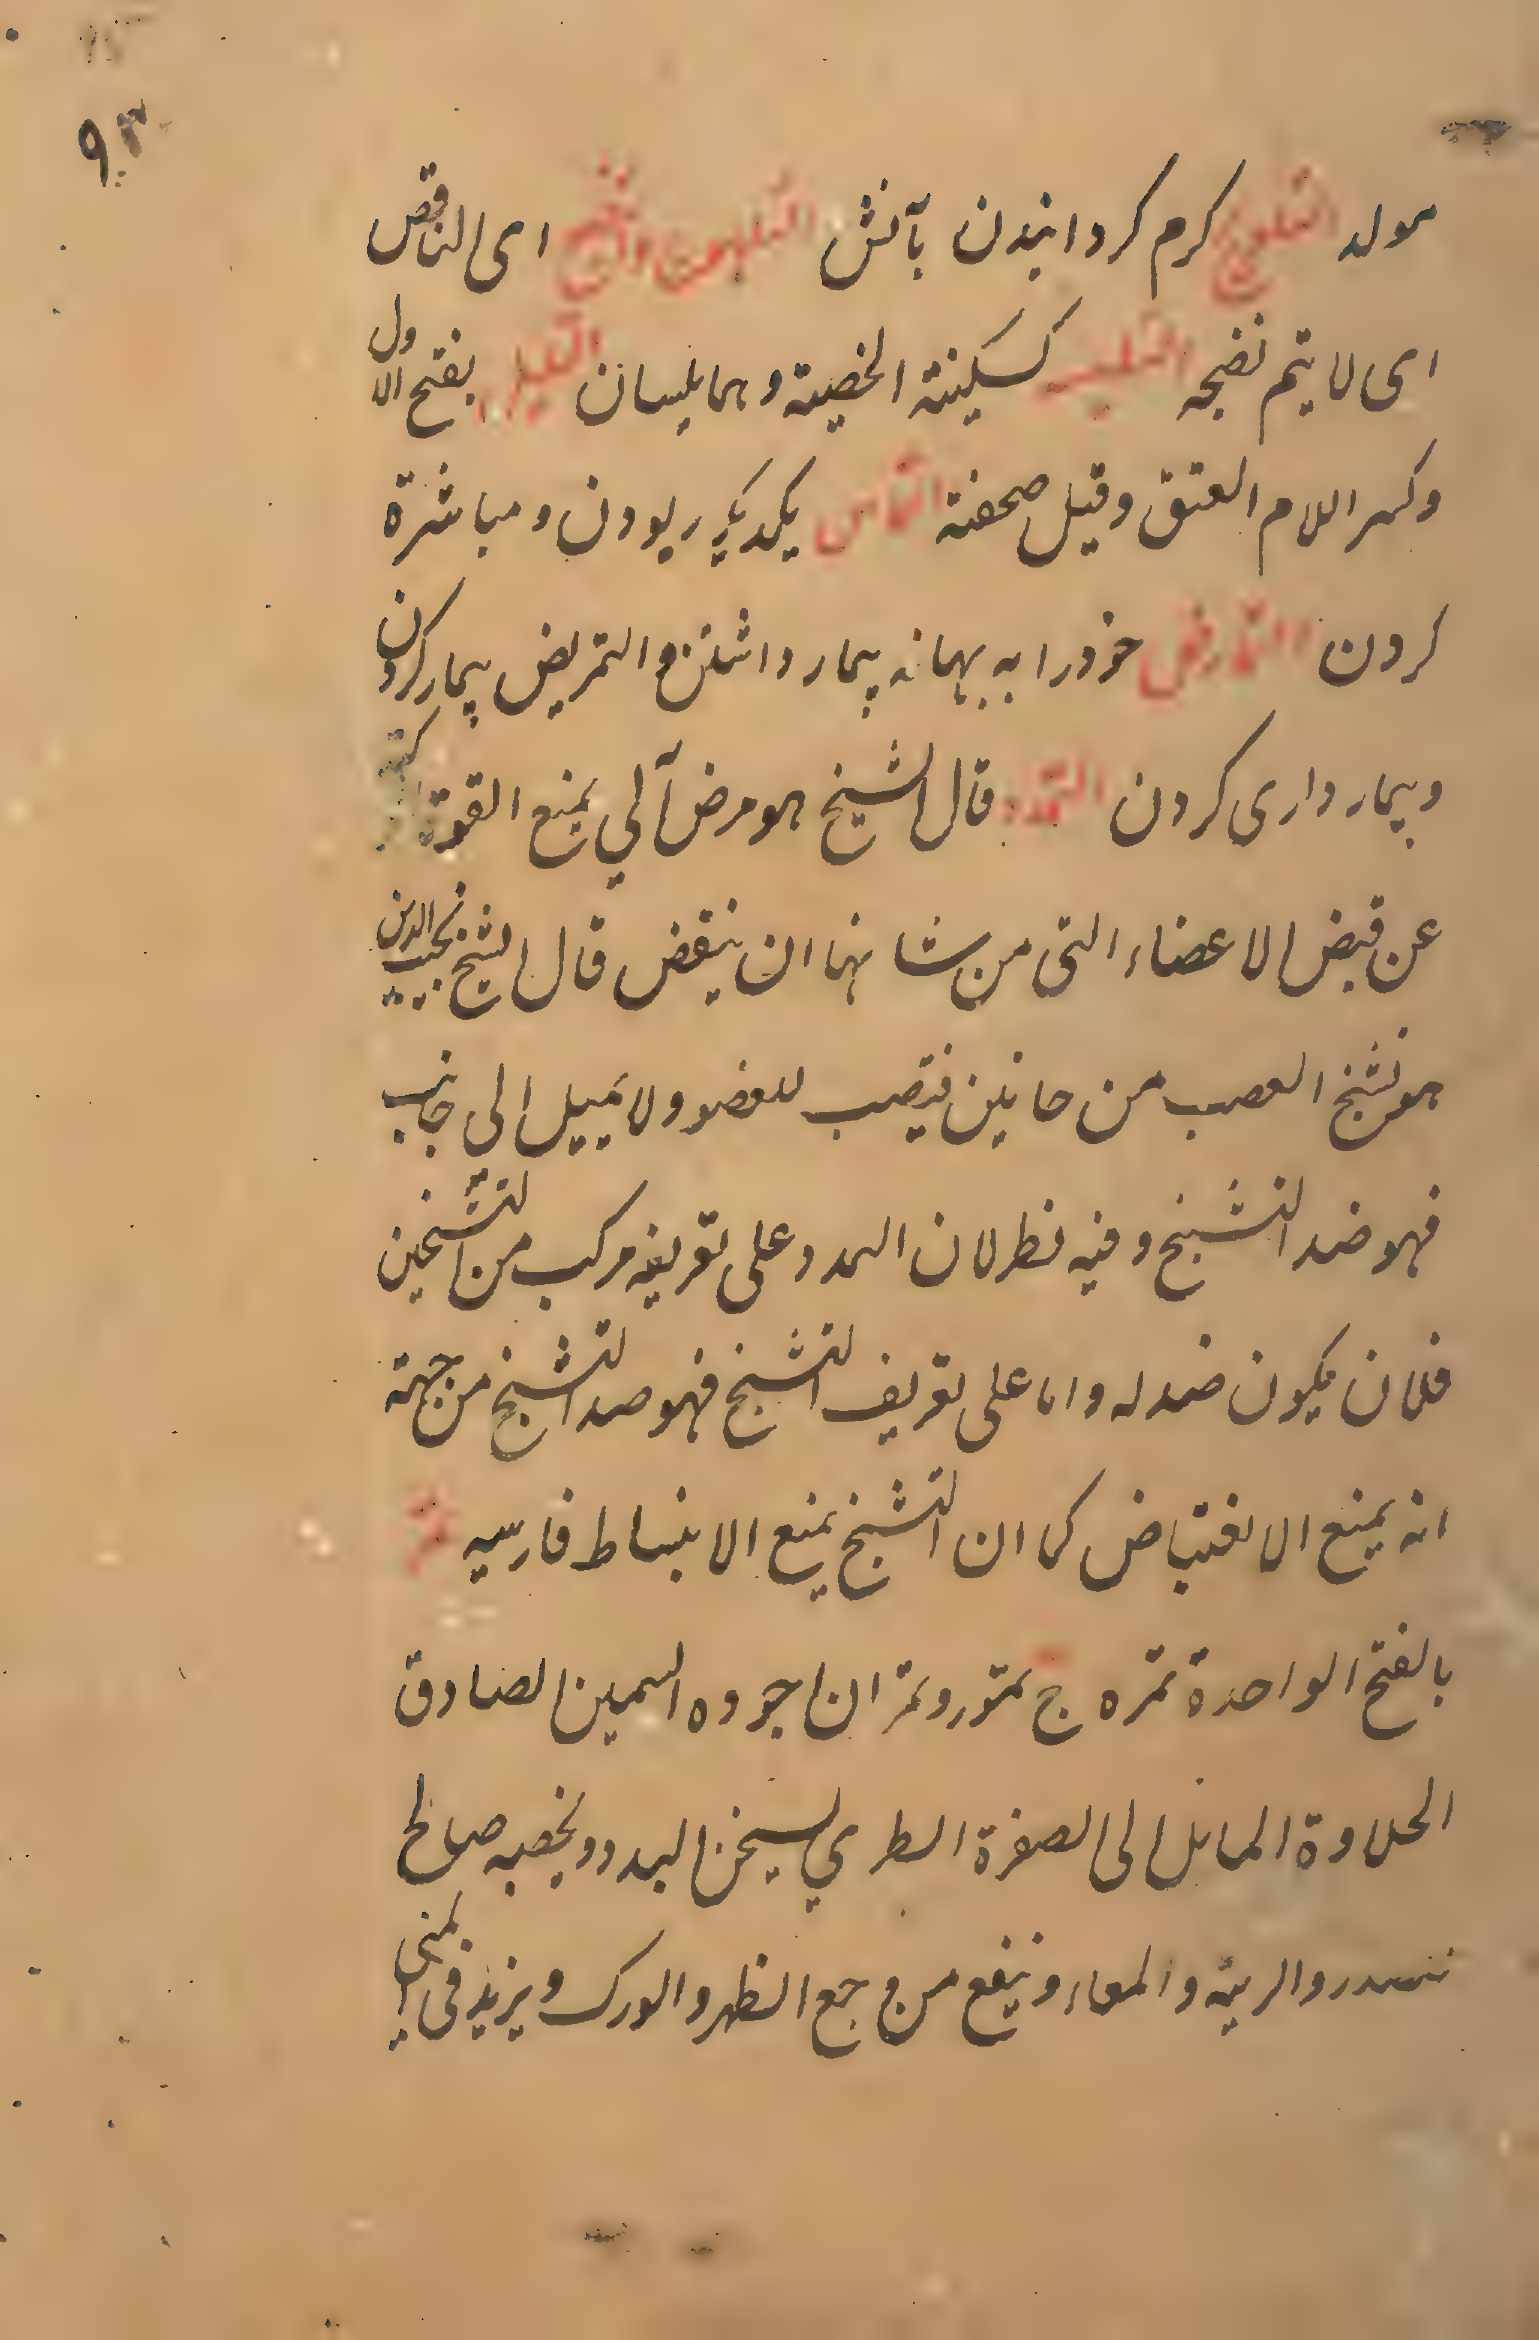 ۹۳
مولد التلویح کرم کردانیدن بآتش التلهوج نضج ای الناقص
ای لا یتم نضجه کسکینة الخصیة و هما بلیسان التلیل بفتح الاول
وکسر اللام العتق وقیل صحفته التماس یکدیکر ربودن و مباشرة
کردن التمارض خود را به بهانه بیمار داشتن و التمریض بیمار کردن
و بیمار داری کردن التمدد قال الشیخ هو مرض آلی یمنع القوة
عن قبض الاعضاء التی من شانها ان ینقبض قال الشیخ نجیب الدین
هو تشنج العصب من جانبین فینتصب العضو ولا یمیل الی جانب
فهو ضد التشنج وفیه نظر لان التمدد علی تعریفه مرکب من التشنجین
فلان یکون ضد له واما علی تعریف التشنج فهو ضد التشنج من جهة
انه یمنع الانقباض کما ان التشنج یمنع الانبساط فارسیه تمر
بالفتح الواحدة تمره ج تمور و تمران اجوده السمین الصادق
الحلاوة المائل الی الصفرة الطری یسخن البدن و یخصبه صالح
للصدر والریة والمعاء وینفع من وجع الظهر والورک ویزید فی المنی